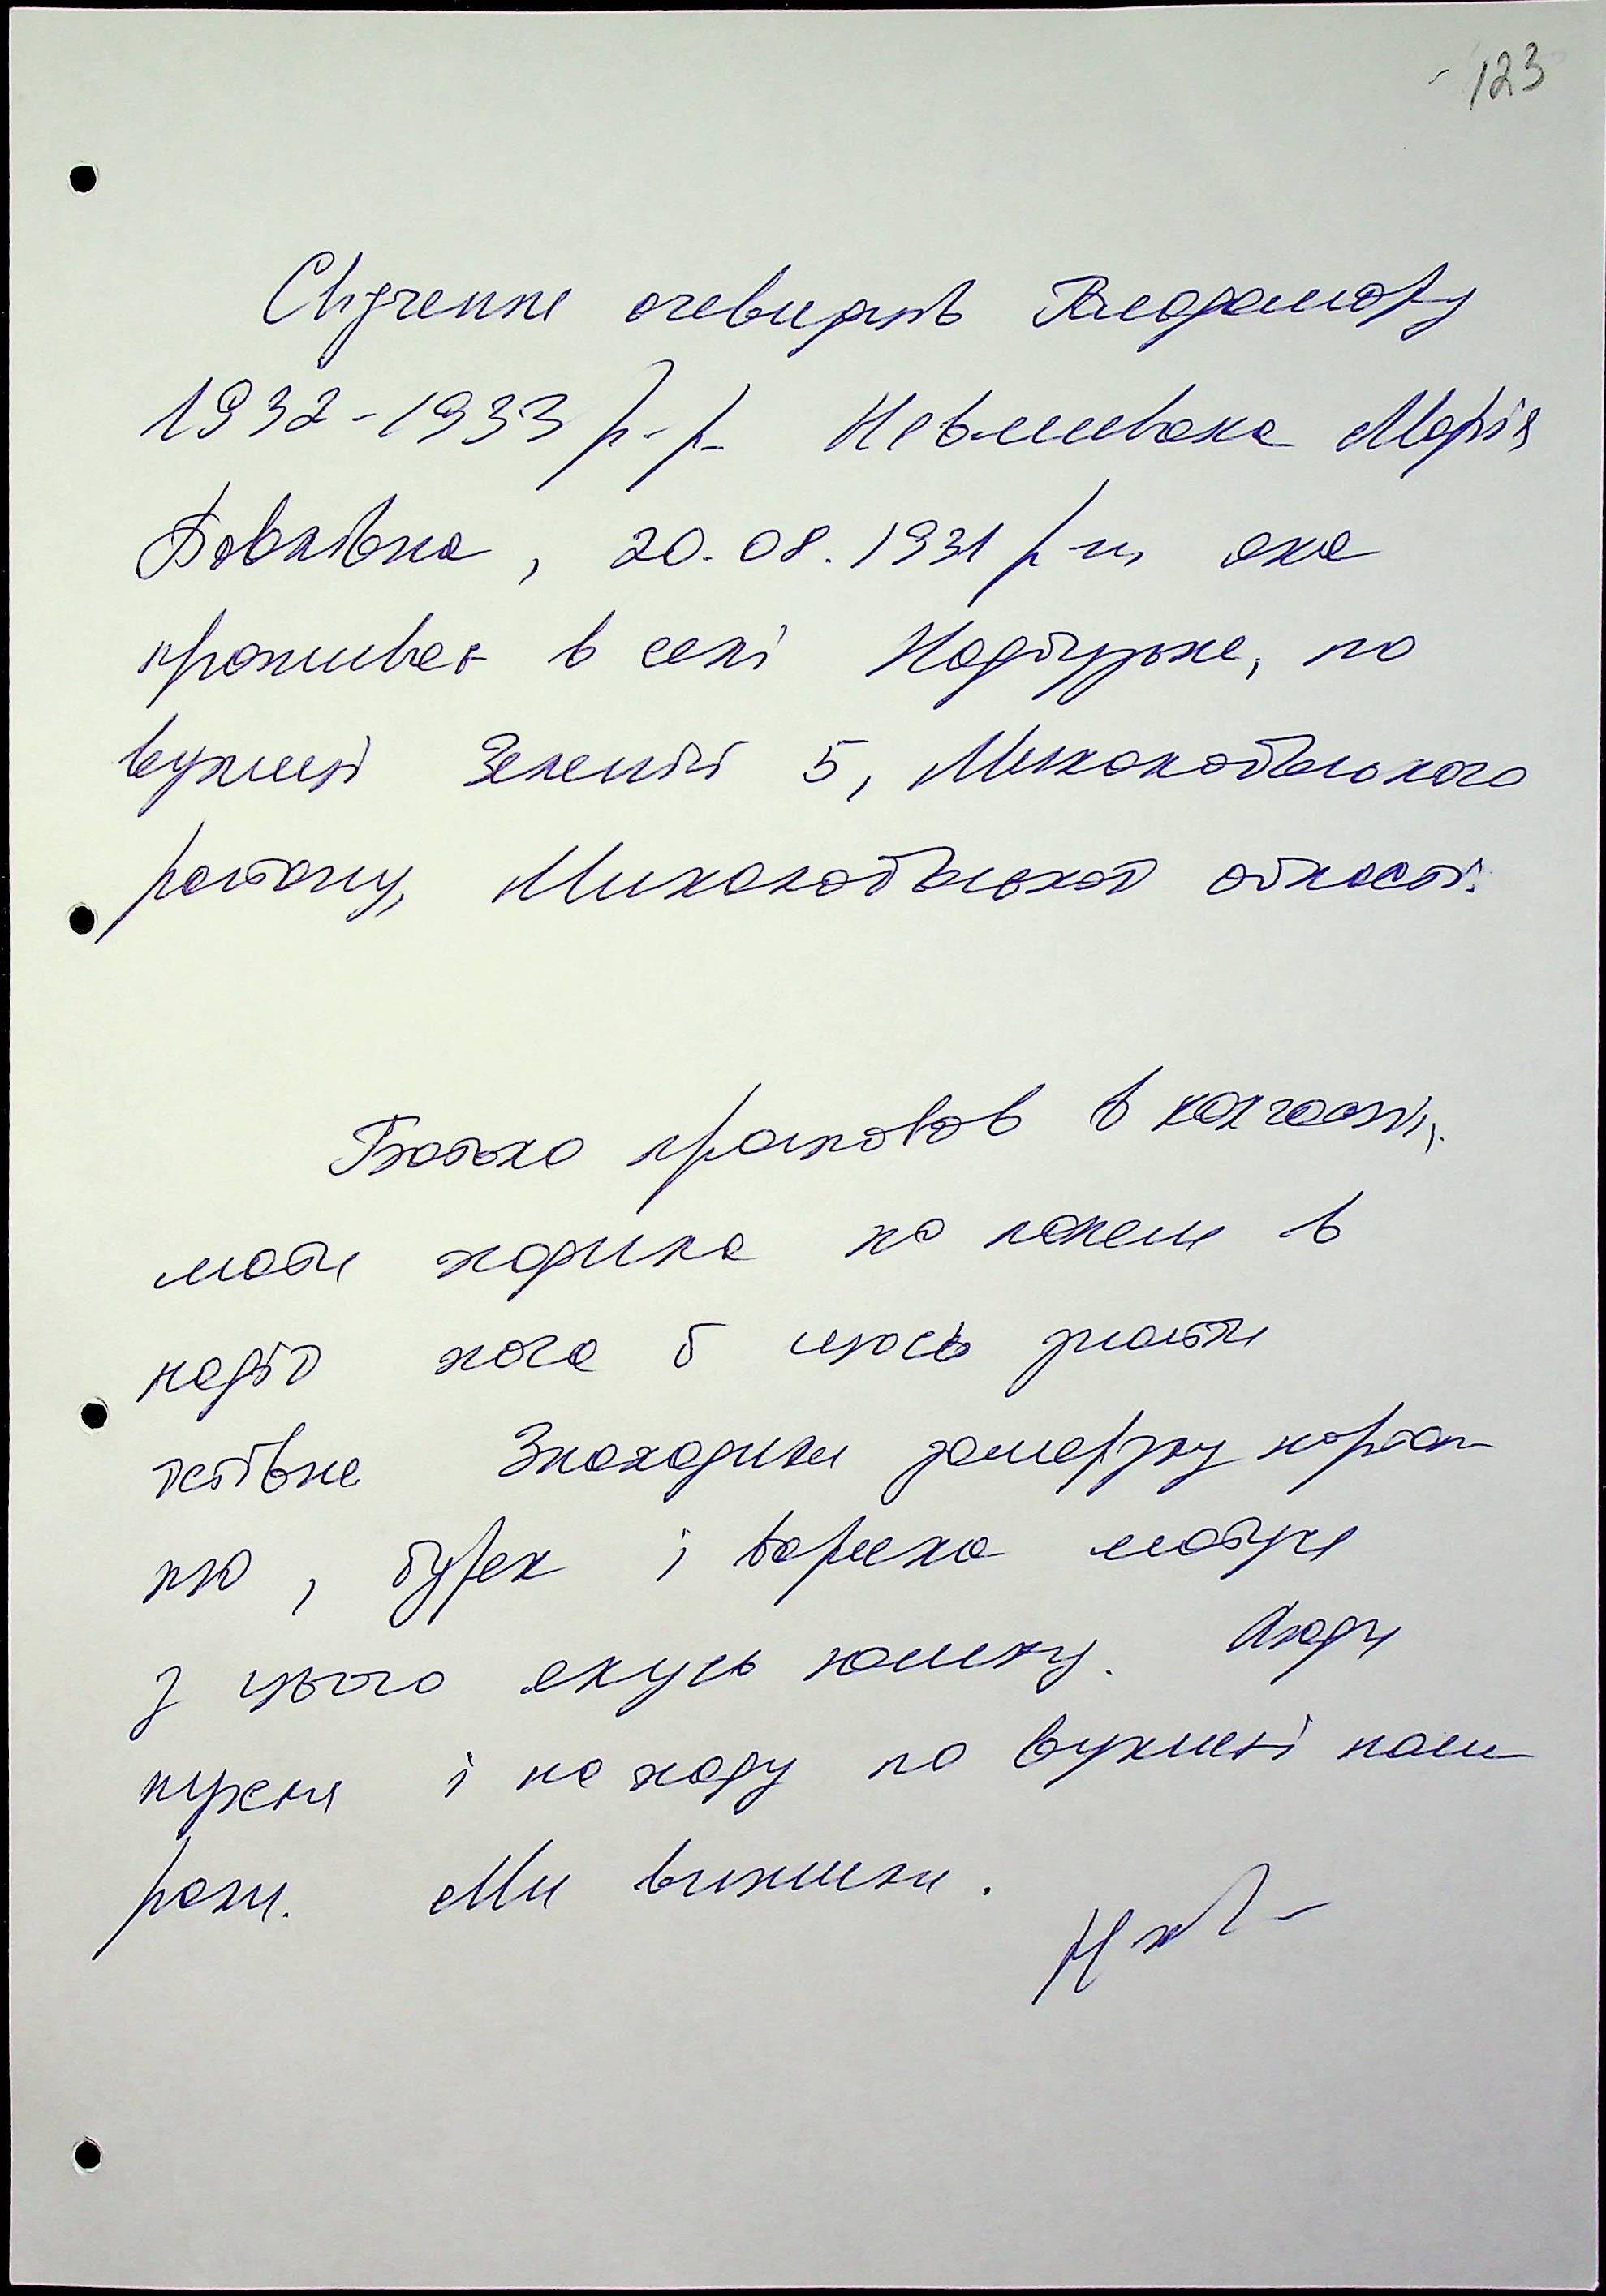 123
Свідчення очевидців Голодомору
1932-1933 р.р. Невмивака Марія
Павлівна, 20.08.1931 р.н, яка
проживає в селі Надбузьке, по
вулиці Зеленій 5, Миколаївського
району, Миколаївської області.
Батько працював в колгоспі,
мати ходила по полям в
надії хоча б щось знайти
їстівне Знаходили замерзлу картоп
лю, буряк і варила матуся
з цього якусь юшку. Люди
пухли і на ходу по вулиці поми
рали. Ми вижили.